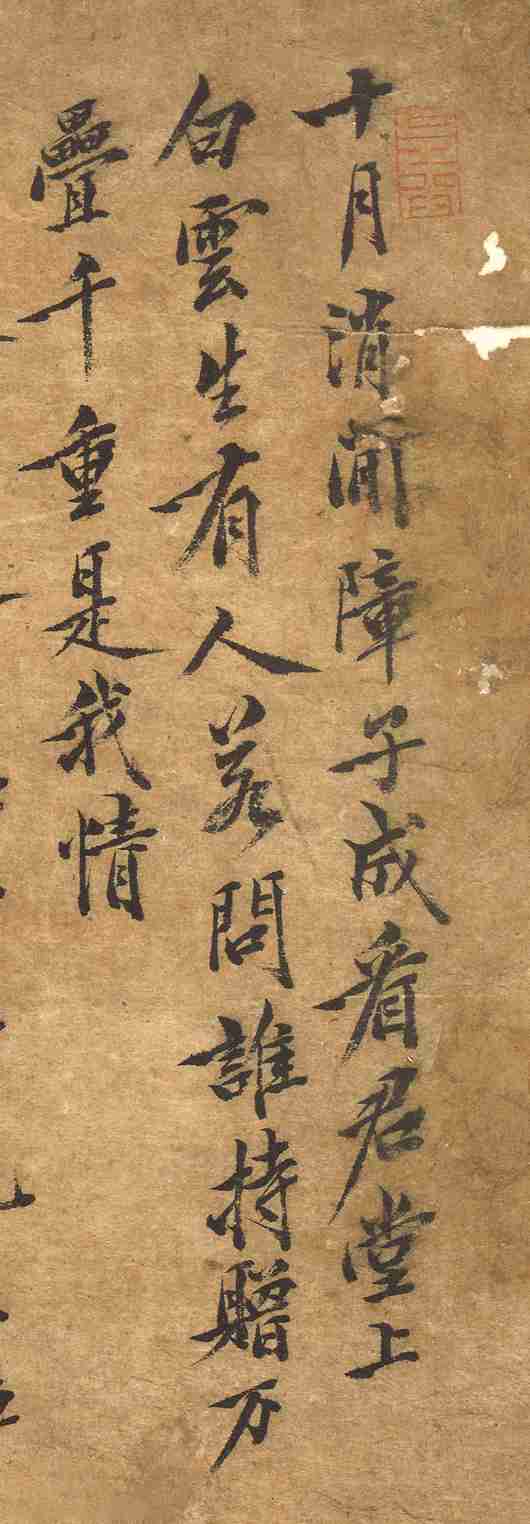 十月消閒障子成看君堂上
白雲生有人若問誰持贈万
疊千重是我情